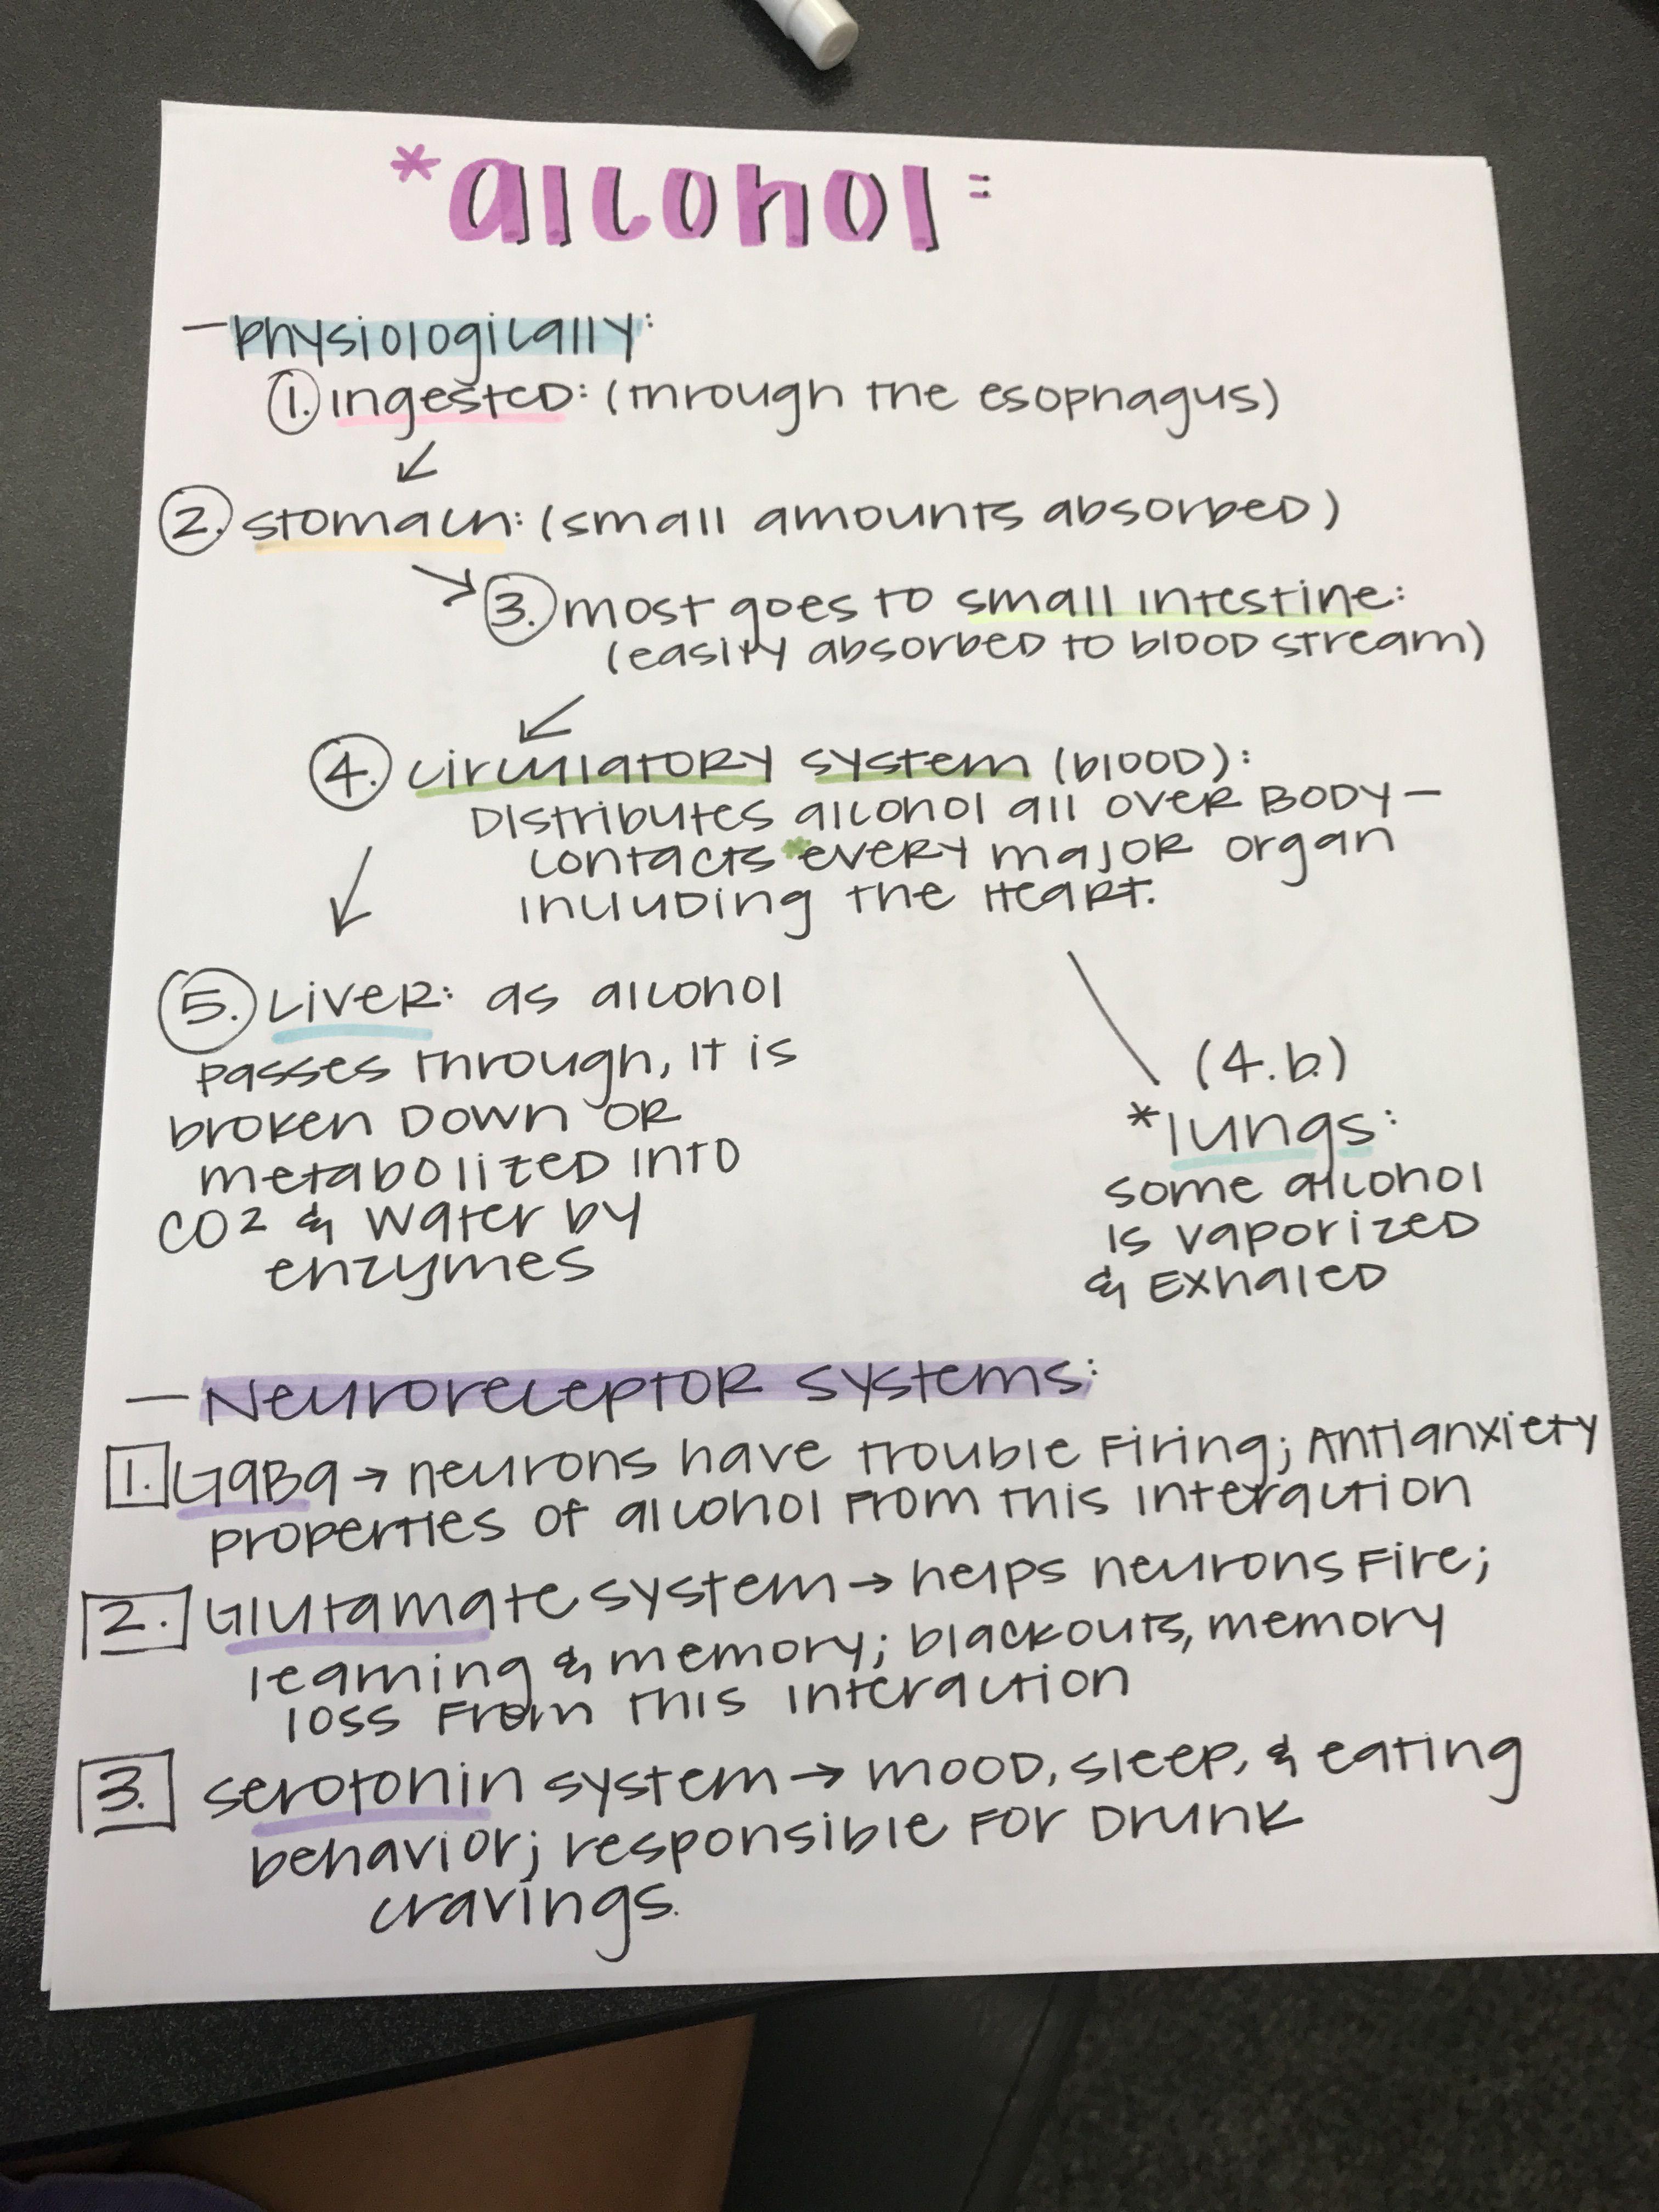 *alcohol:
- physiologically:
1. ingested: (through the esophagus)
2. stomach: (small amounts absorbed)
3. most goes to small intestine:
(easily absorbed to blood stream)
4. circulatory system (blood):
Distributes alcohol all over BODY -
contacts *every major organ
including the Heart.
5. Liver: as alcohol
passes through, it is
broken down or
metabolized into
CO2 & water by
enzymes
(4.b.)
*lungs:
some alcohol
is vaporized
& Exhaled
- Neuroreceptor systems:
1. GaBa → neurons have trouble firing; Antianxiety
properties of alcohol from this interaction
2. Glutamate system → helps neurons fire;
learning & memory; blackouts, memory
loss from this interaction
3. serotonin system → mood, sleep, & eating
behavior; responsible for Drunk
cravings.